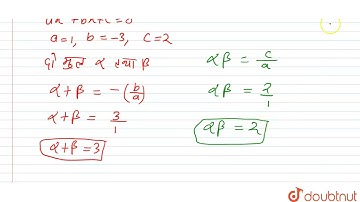 ax² + bx + c = 0
a=1, b=-3, c=2
दो मुल α तथा β
α+β = -(b/a)
α+β = 3/1
α+β = 3
αβ = c/a
αβ = 2/1
αβ = 2
doubtnut